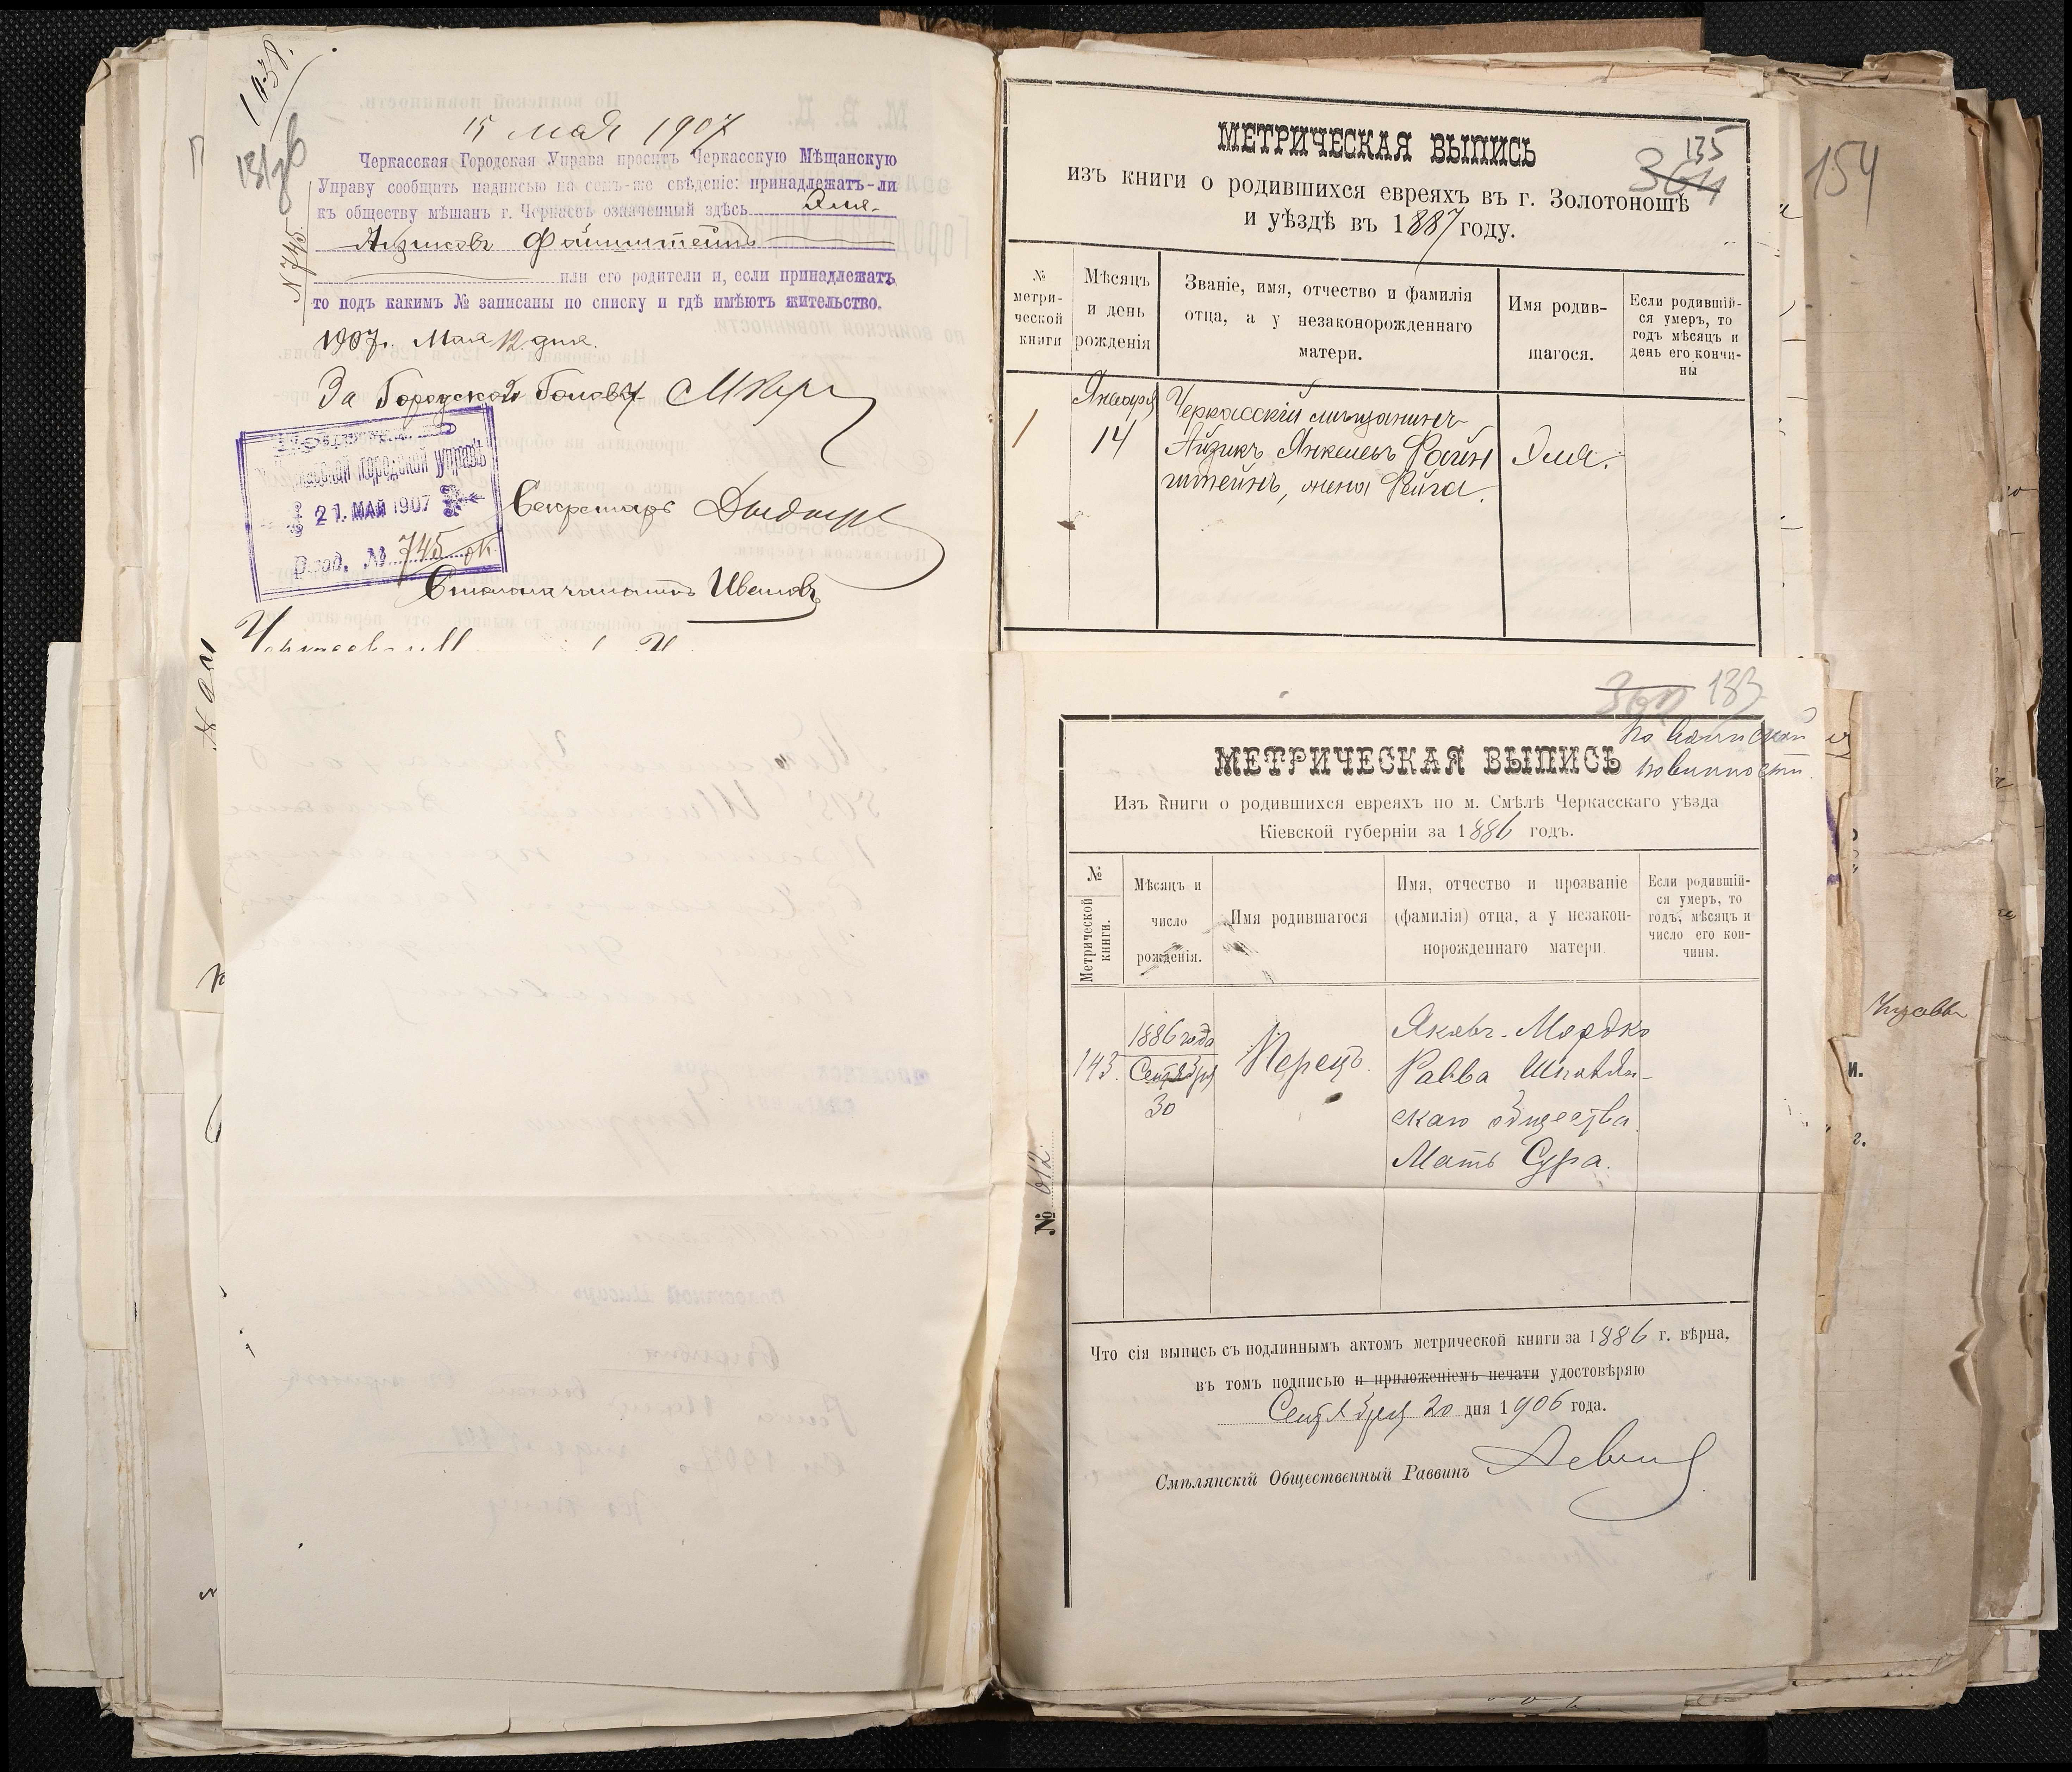 1038.
15 мая 1907
Черкасская Городская Управа проситъ Черкасскую Мѣщанскую
Управу сообщить надписью на семъ-же свѣдѣніе: принадлежатъ-ли
къ обществу мѣщанъ г. Черкассъ означенный здѣсь Эля
Айзиковъ Файнштейнъ
или его родители и, если принадлежатъ
то подъ какимъ № записаны по списку и гдѣ имѣютъ жительство.
N 745.
1907 г. Мая 12 дня.
За Городской Голову
Черкасской городской управѣ
21. МАЙ 1907
Вход. № 745
Секретарь
Столоначальникъ Ивановъ
МЕТРИЧЕСКАЯ ВЫПИСЬ
135
364
изъ книги о родившихся евреяхъ въ г. Золотоношѣ
и уѣздѣ въ 1887 году.
№ метри-ческой книги
Мѣсяцъ и день рожденія
Званіе, имя, отчество и фамилія
отца, а у незаконорожденнаго
матери.
Имя родив-
шагося.
Если родившій-
ся умеръ, то
годъ мѣсяцъ и
день его кончи-
ны
1
Января
14
Черкасскій мѣщанинъ
Айзикъ Янкелевъ Файн
штейнъ, жена Фейга.
Эля.
154
133
По воинской
повинности.
МЕТРИЧЕСКАЯ ВЫПИСЬ
Изъ книги о родившихся евреяхъ по м. Смѣлѣ Черкасскаго уѣзда
Кіевской губерніи за 1886 годъ.
№
Метрической
книги.
Мѣсяцъ и
число
рожденія.
Имя родившагося
Имя, отчество и прозваніе
(фамилія) отца, а у незакон-
норожденнаго матери.
Если родившій-
ся умеръ, то
годъ, мѣсяцъ и
число его кон-
чины.
143.
1886 года
Сентября
30
Перецъ.
Яковъ-Мордко
Равва Шполян-
скаго общества.
Мать Сура.
№ 612
Что сія выпись съ подлиннымъ актомъ метрической книги за 1886 г. вѣрна,
въ томъ подписью и приложеніемъ печати удостовѣряю
Сентября 20 дня 1906 года.
Смѣлянскій Общественный Раввинъ